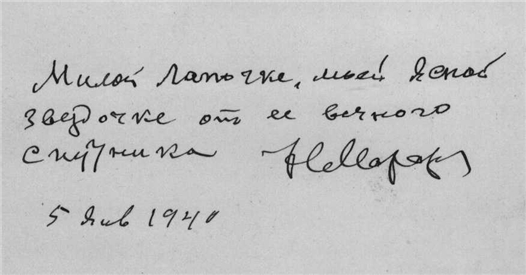 Милой Лапочке, моей ясной
звездочке от ее вечного
спутника
5 янв 1940